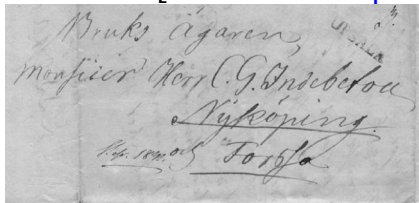 Bruks Ägaren,
UPSALA
Monsieur Herr C. G. Indebetou
Nyköping.
och Forssa